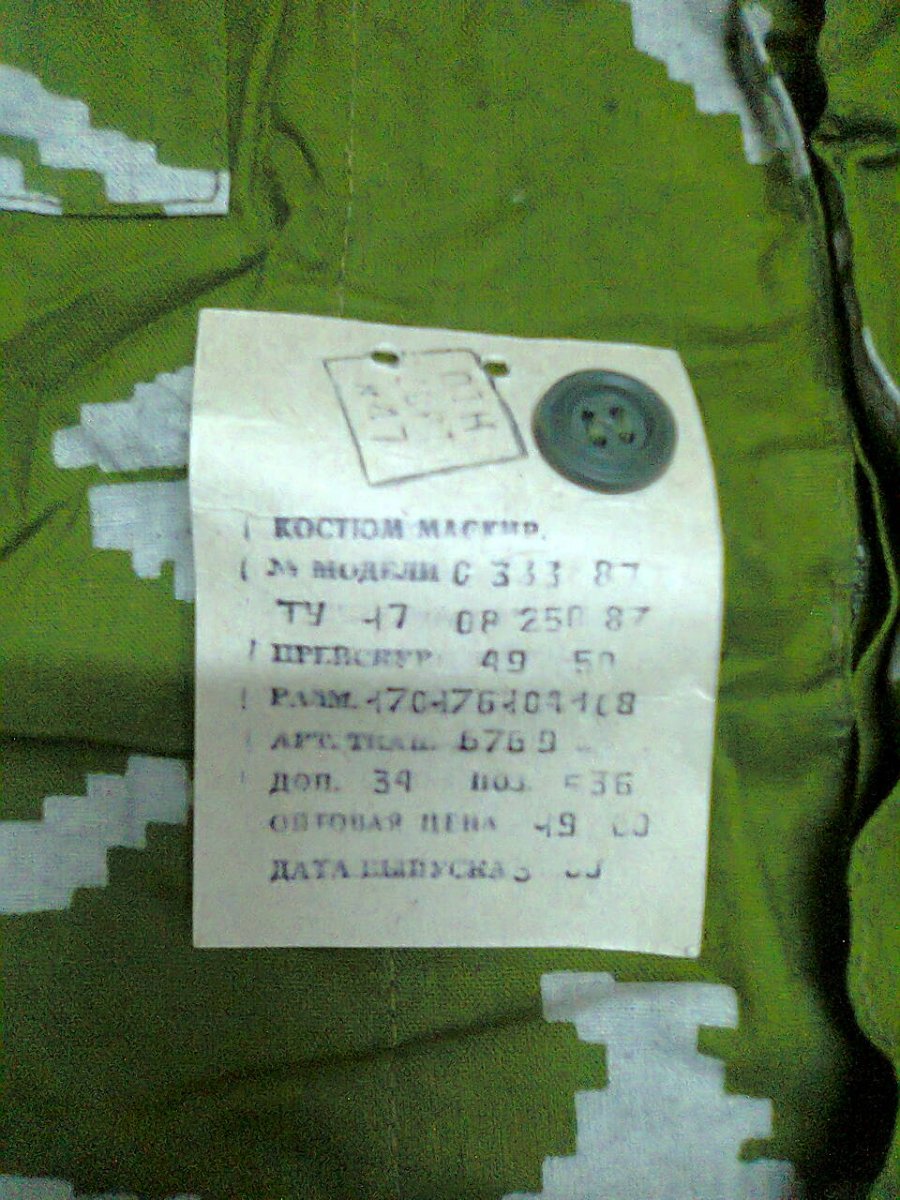 КОСТЮМ МАСКИР.
№ МОДЕЛИ С 333 87
ТУ 17 08 250 87
ПРЕЙСКУР. 49 50
РАЗМ. 170-176-104-108
АРТ. ТКАН. 6769
ДОП. 34 ПОЗ. 536
ОПТОВАЯ ЦЕНА 19 00
ДАТА ВЫПУСКА